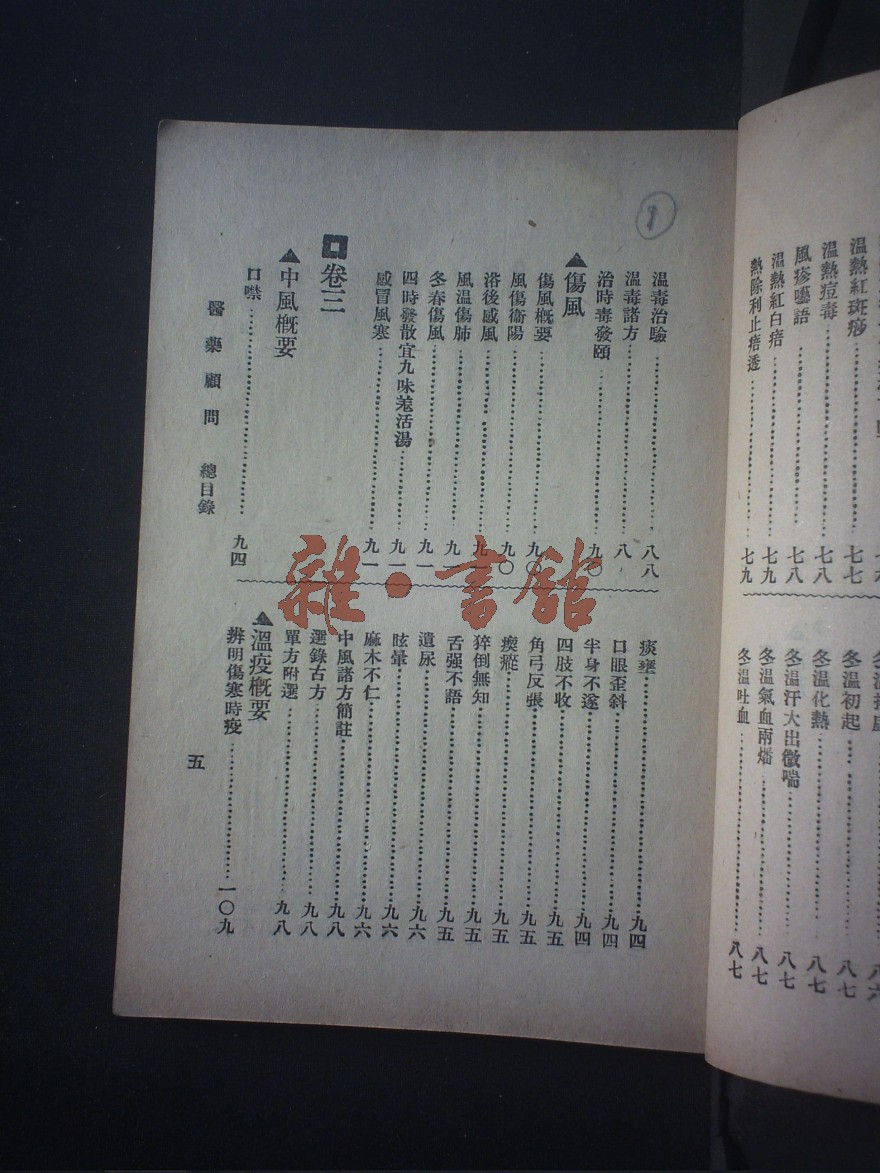 溫熱紅斑痧……七七
溫熱痘毒……七八
風疹囈語……七八
溫熱紅白㾦……七九
熱除利止㾦透……七九
冬溫初起……八七
冬溫化熱……八七
冬溫汗大出微喘……八七
冬溫氣血兩燔……八七
冬溫吐血……八七
溫毒治驗……八八
溫毒諸方……八
治時毒發頤……九〇
▲傷風
傷風概要……九〇
風傷衛陽……九〇
浴後感風……九一
風溫傷肺……九一
冬春傷風……九一
四時發散宜九味羌活湯……九一
感冒風寒……九一
卷三
▲中風概要
口噤……九四
痰壅……九四
口眼歪斜……九四
半身不遂……九四
四肢不收……九五
角弓反張……九五
瘈瘲……九五
猝倒無知……九五
舌强不語……九五
遺尿……九六
眩暈……九六
麻木不仁……九六
中風諸方簡註……九八
選錄古方……九八
單方附選……九八
▲溫疫概要
辨明傷寒時疫……一〇九
醫藥顧問 總目錄
五
雜·書館